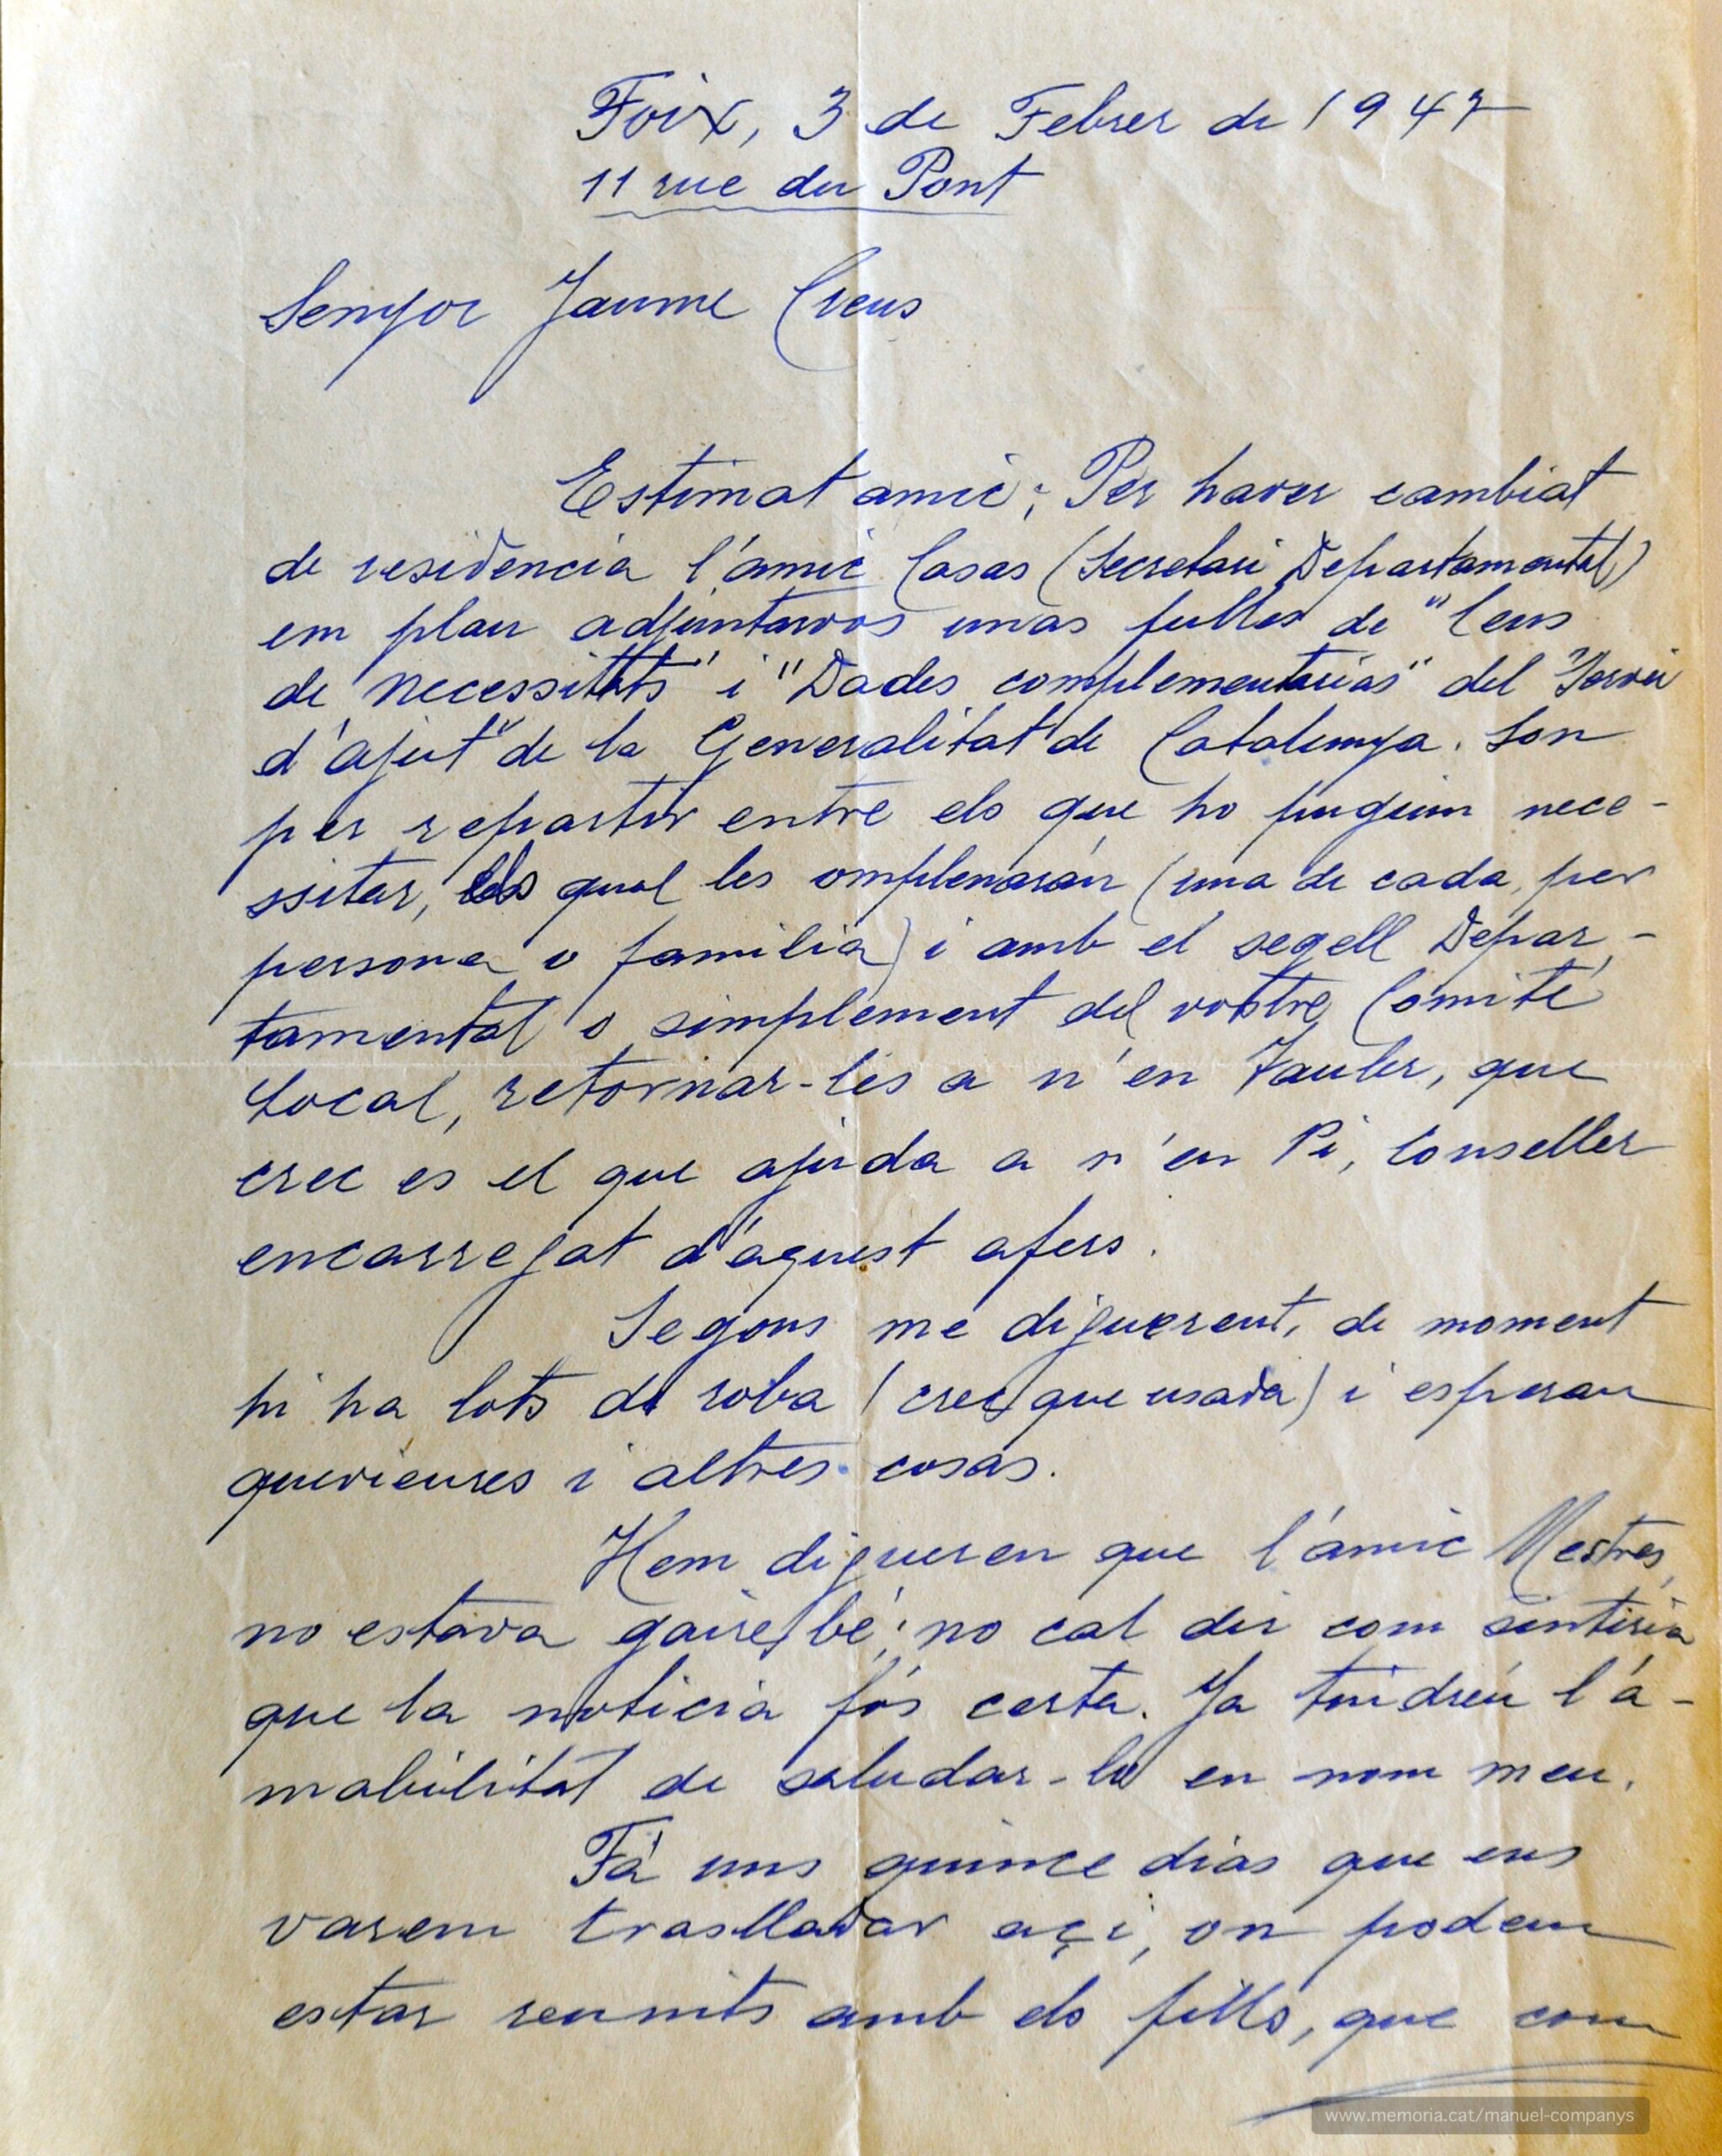 Foix, 3 de Febrer de 1947
11 rue du Pont
Senyor Jaume Creus
Estimat amic; Per haver cambiat
de residencia l'amic Casas (Secretari Departamental)
em plau adjuntarvos unas fulles de "Cens
de necessitats" i "Dades complementarias" del "Servei
d'ajut" de la Generalitat de Catalunya. Son
per repartir entre els que ho puguin nece-
ssitar, els qual les omplenarán (una de cada, per
persona o familia) i amb el segell Depar-
tamental o simplement del vostre Comité
Local, retornar-les a n'en Tauler, que
crec es el que ajuda a n'en Pi, Conseller
encarregat d'aquest afers.
Segons me diguerent, de moment
hi ha lots de roba (crec que usada) i esperan
queviures i altres cosas.
Hem digueren que l'amic Mestres,
no estava gaire bé; no cal dir com sentiria
que la noticia fós certa. Ja tindréu l'a-
mabilitat de saludar-lo en nom meu.
Fá uns quince dias que ens
varem traslladar açi, on podem
estar reunits amb els fills, que com
www.memoria.cat/manuel-companys